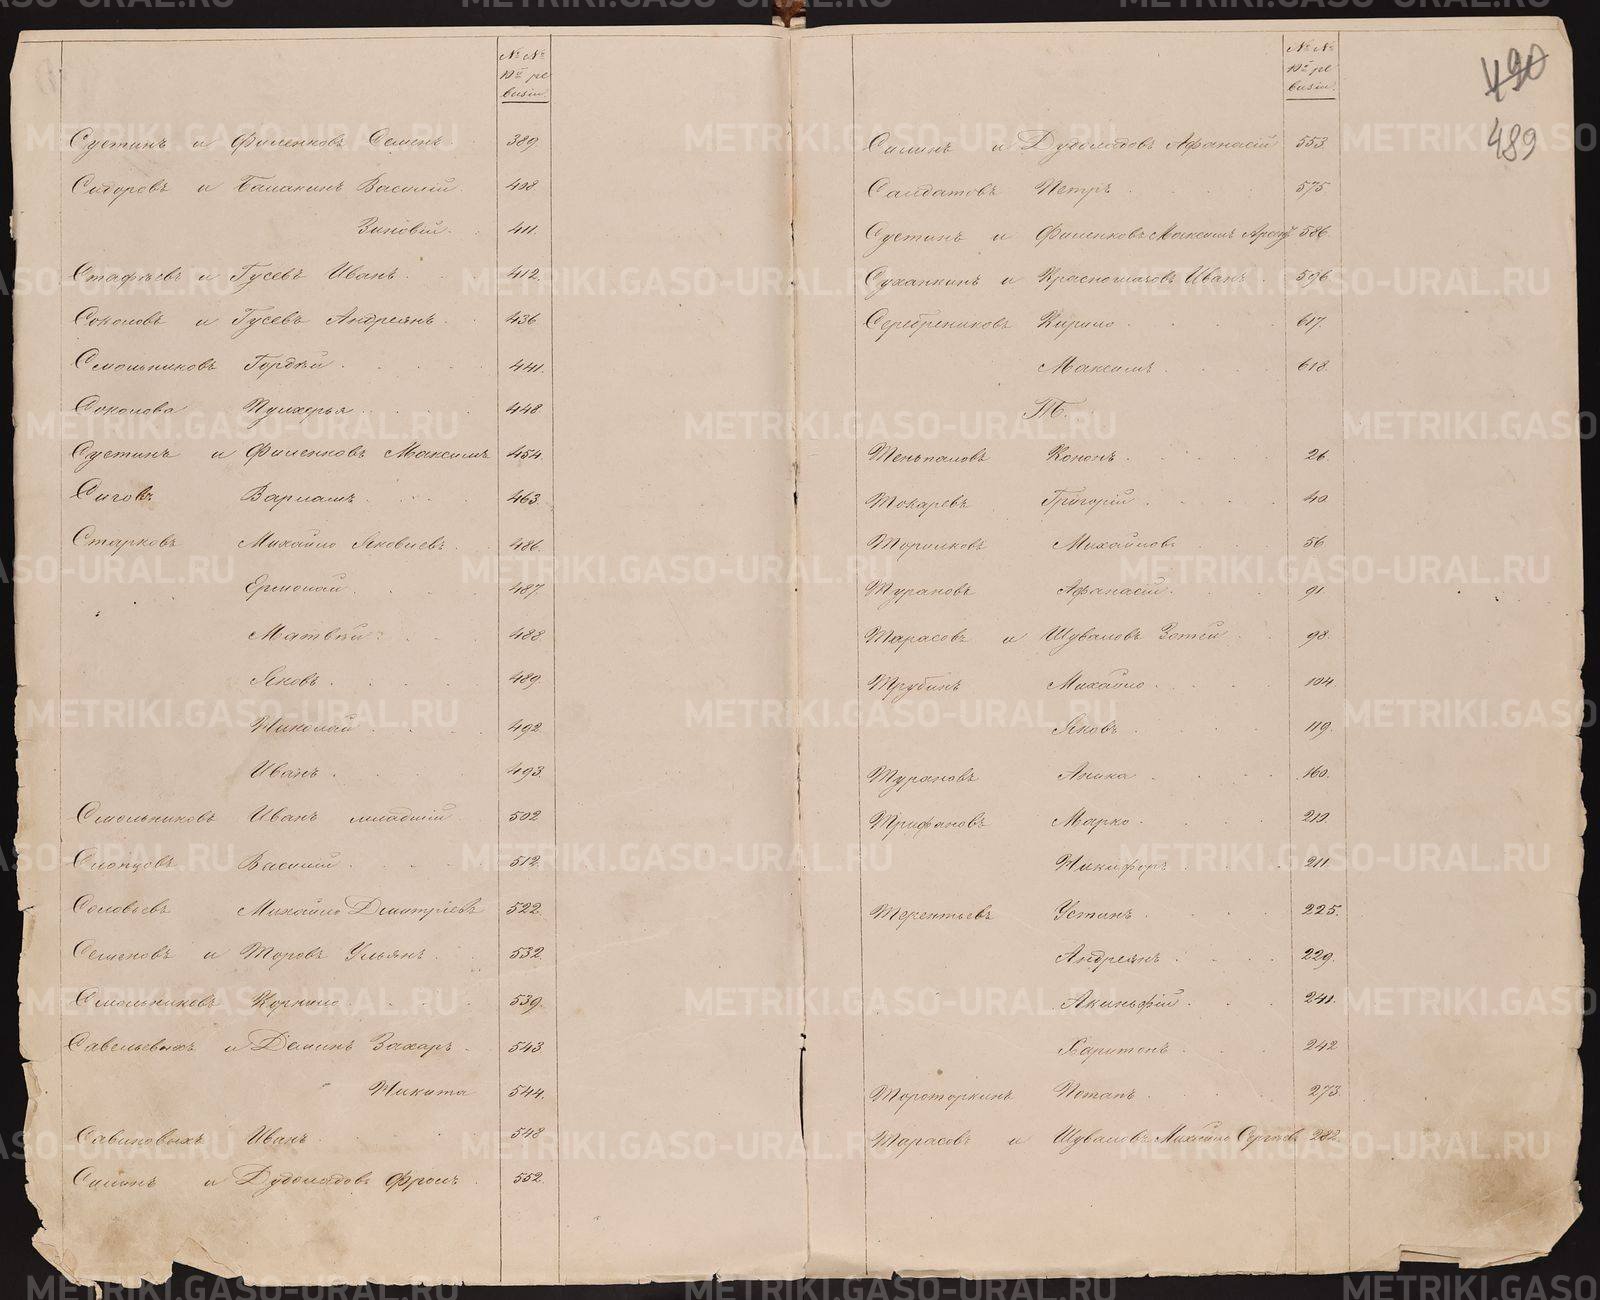 № №
10й ре
визіи.
Сустинъ и Филенковъ Семенъ. 389
Сидоровъ и Балакинъ Василій. 408.
Зиновій. 411.
Стафѣевъ и Гусевъ Иванъ. 412.
Соколовъ и Гусевъ Андреянъ. 436
Смольниковъ Гордѣй. 441.
Соколова Пулхерья. 448.
Сустинъ и Филенковъ Максимъ 454.
Сиговъ Варламъ. 463.
Старковъ Михайло Яковлевъ. 486.
Ермолай. 487.
Матвѣй. 488.
Яковъ. 489.
Николай. 492.
Иванъ. 493.
Смольниковъ Иванъ младшій. 502
Слопцовъ Василій. 512.
Соловьевъ Михайло Дмитріевъ 522.
Семеновъ и Торовъ Ульянъ. 532.
Смольниковъ Корнило. 539.
Савельевыхъ и Деминъ Захаръ. 543
Никита 544.
Савиновыхъ Иванъ. 548
Силинъ и Дудоладовъ Фролъ. 552.
№ №
10й ре
визіи.
490
489
Силинъ и Дудоладовъ Афанасій 553.
Салдатовъ Петръ. 575.
Сустинъ и Филенковъ Максимъ 586.
Суханкинъ и Иванъ. 596.
Серебрениковъ Кирило. 617.
Максимъ. 618.
Т.
Теньпаловъ Кононъ. 26.
Токаревъ Григорій. 40
Торилковъ Михайловъ 56
Турановъ Афанасій. 91
Тарасовъ и Шуваловъ 98.
Трубинъ Михайло. 104.
Яковъ. 119.
Турановъ Аника. 160.
Трифановъ Марко. 210.
Никифоръ. 211
Терентьевъ Устинъ. 225.
Андреянъ. 229.
Акиньфій. 241.
Харитонъ. 242
Тороторкинъ Потапъ. 273.
Тарасовъ и Шуваловъ Михайло Сергѣевъ 282.
METRIKI.GASO-URAL.RU